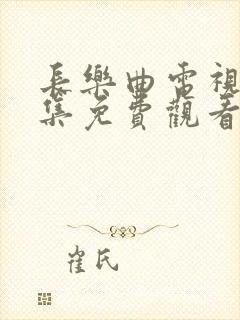 長樂曲電視
集免費觀看
崔氏